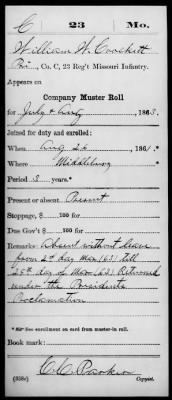 C 23 Mo.
William W. Crockett
Pri, Co. C, 23 Reg't Missouri Infantry.
Appears on
Company Muster Roll
for July & Aug, 1863.
Joined for duty and enrolled:
When Aug 26, 1861.*
Where Middlebury
Period 3 years.*
Present or absent Present
Stoppage, $ 100 for
Due Gov't $ 100 for
Remarks: Absent without leave
from 2d day Mar (63) till
25th day of Mar (63) Returned
under the Presidents
Proclamation
* See enrollment on card from master-in roll.
Book mark:
C. C. Parker
(358c) Copyist.